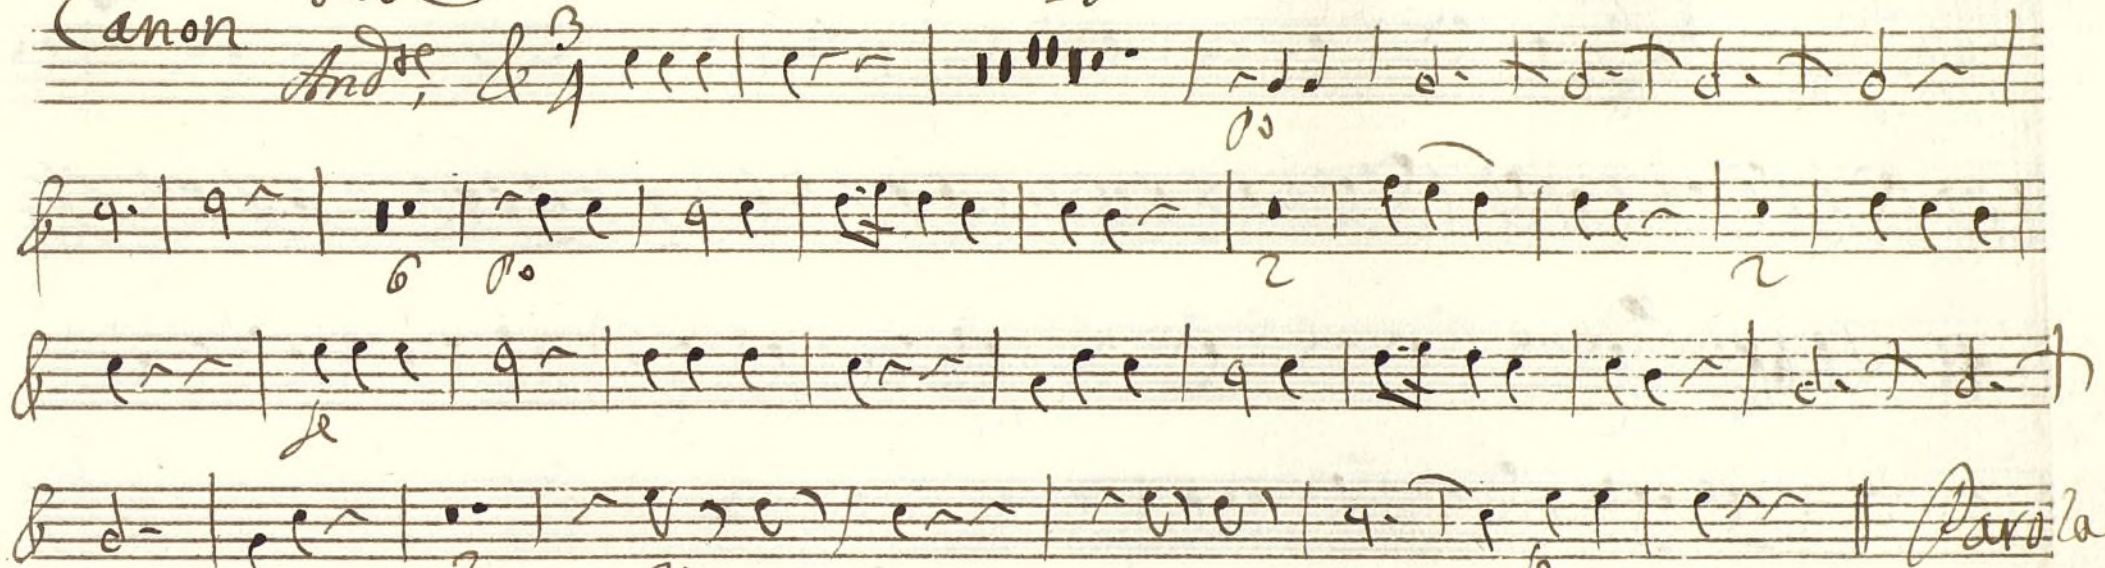 Canon Andte, 3/4
po
6 po 2 2
fe
Parola